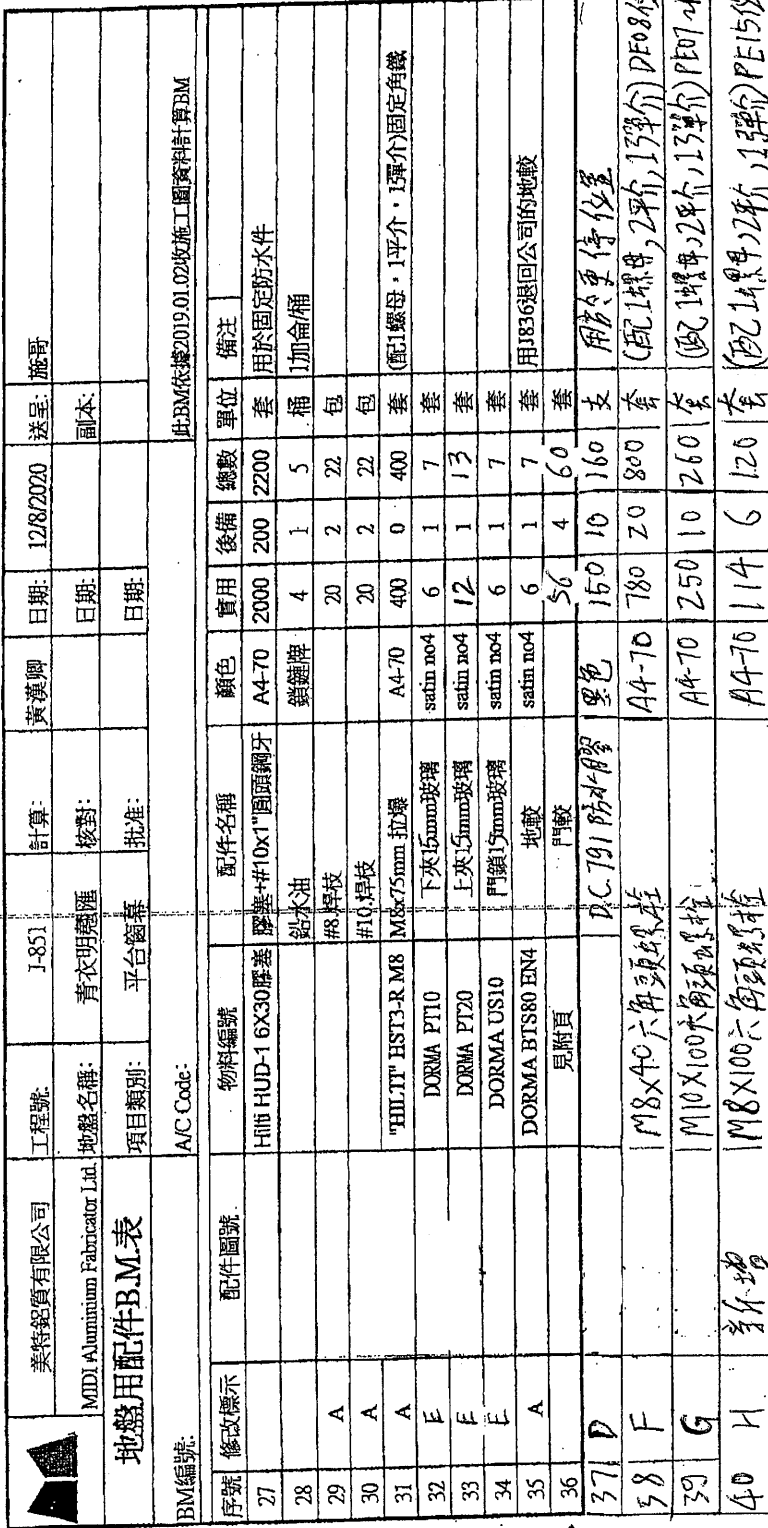 美特鋁質有限公司 工程號: J-851 計算: 黃漢卿 日期: 12/8/2020 送呈: 施哥
MIDI Aluminium Fabricator Ltd. 地盤名稱: 青衣明翹匯 核對: 日期: 副本:
地盤用配件B.M.表 項目類別: 平台窗幕 批准: 日期:
BM編號: A/C Code: 此BM依據2019.01.02收施工圖資料計算BM
序號 修改標示 配件圖號 物料編號 配件名稱 顏色 實用 後備 總數 單位 備注
27 Hilti HUD-1 6X30膠塞 膠塞+#10x1"圓頭鋼牙 A4-70 2000 200 2200 套 用於固定防水件
28 鉛水油 鎖鏈牌 4 1 5 桶 1加侖/桶
29 A #8.焊枝 20 2 22 包
30 A #10.焊枝 20 2 22 包
31 A "HILTI" HST3-R M8 M8x75mm 拉爆 A4-70 400 0 400 套 (配1螺母,1平介,1彈介)固定角鐵
32 E DORMA PT10 下夾15mm玻璃 satin no4 6 1 7 套
33 E DORMA PT20 上夾15mm玻璃 satin no4 12 1 13 套
34 E DORMA US10 門鎖15mm玻璃 satin no4 6 1 7 套
35 A DORMA BTS80 EN4 地較 satin no4 6 1 7 套 用J836退回公司的地較
36 見附頁 門較 56 4 60 套
37 D D.C.791防水膠 黑色 150 10 160 支 用於更停位置
38 F M8x40六角頭螺栓 A4-70 780 20 800 套 (配1螺母,2平介,1彈介)DE08
39 G M10X100六角頭螺栓 A4-70 250 10 260 套 (配1螺母,2平介,1彈介)PE07
40 H 新增 M8X100六角頭螺栓 A4-70 114 6 120 套 (配1螺母,2平介,1彈介)PE15